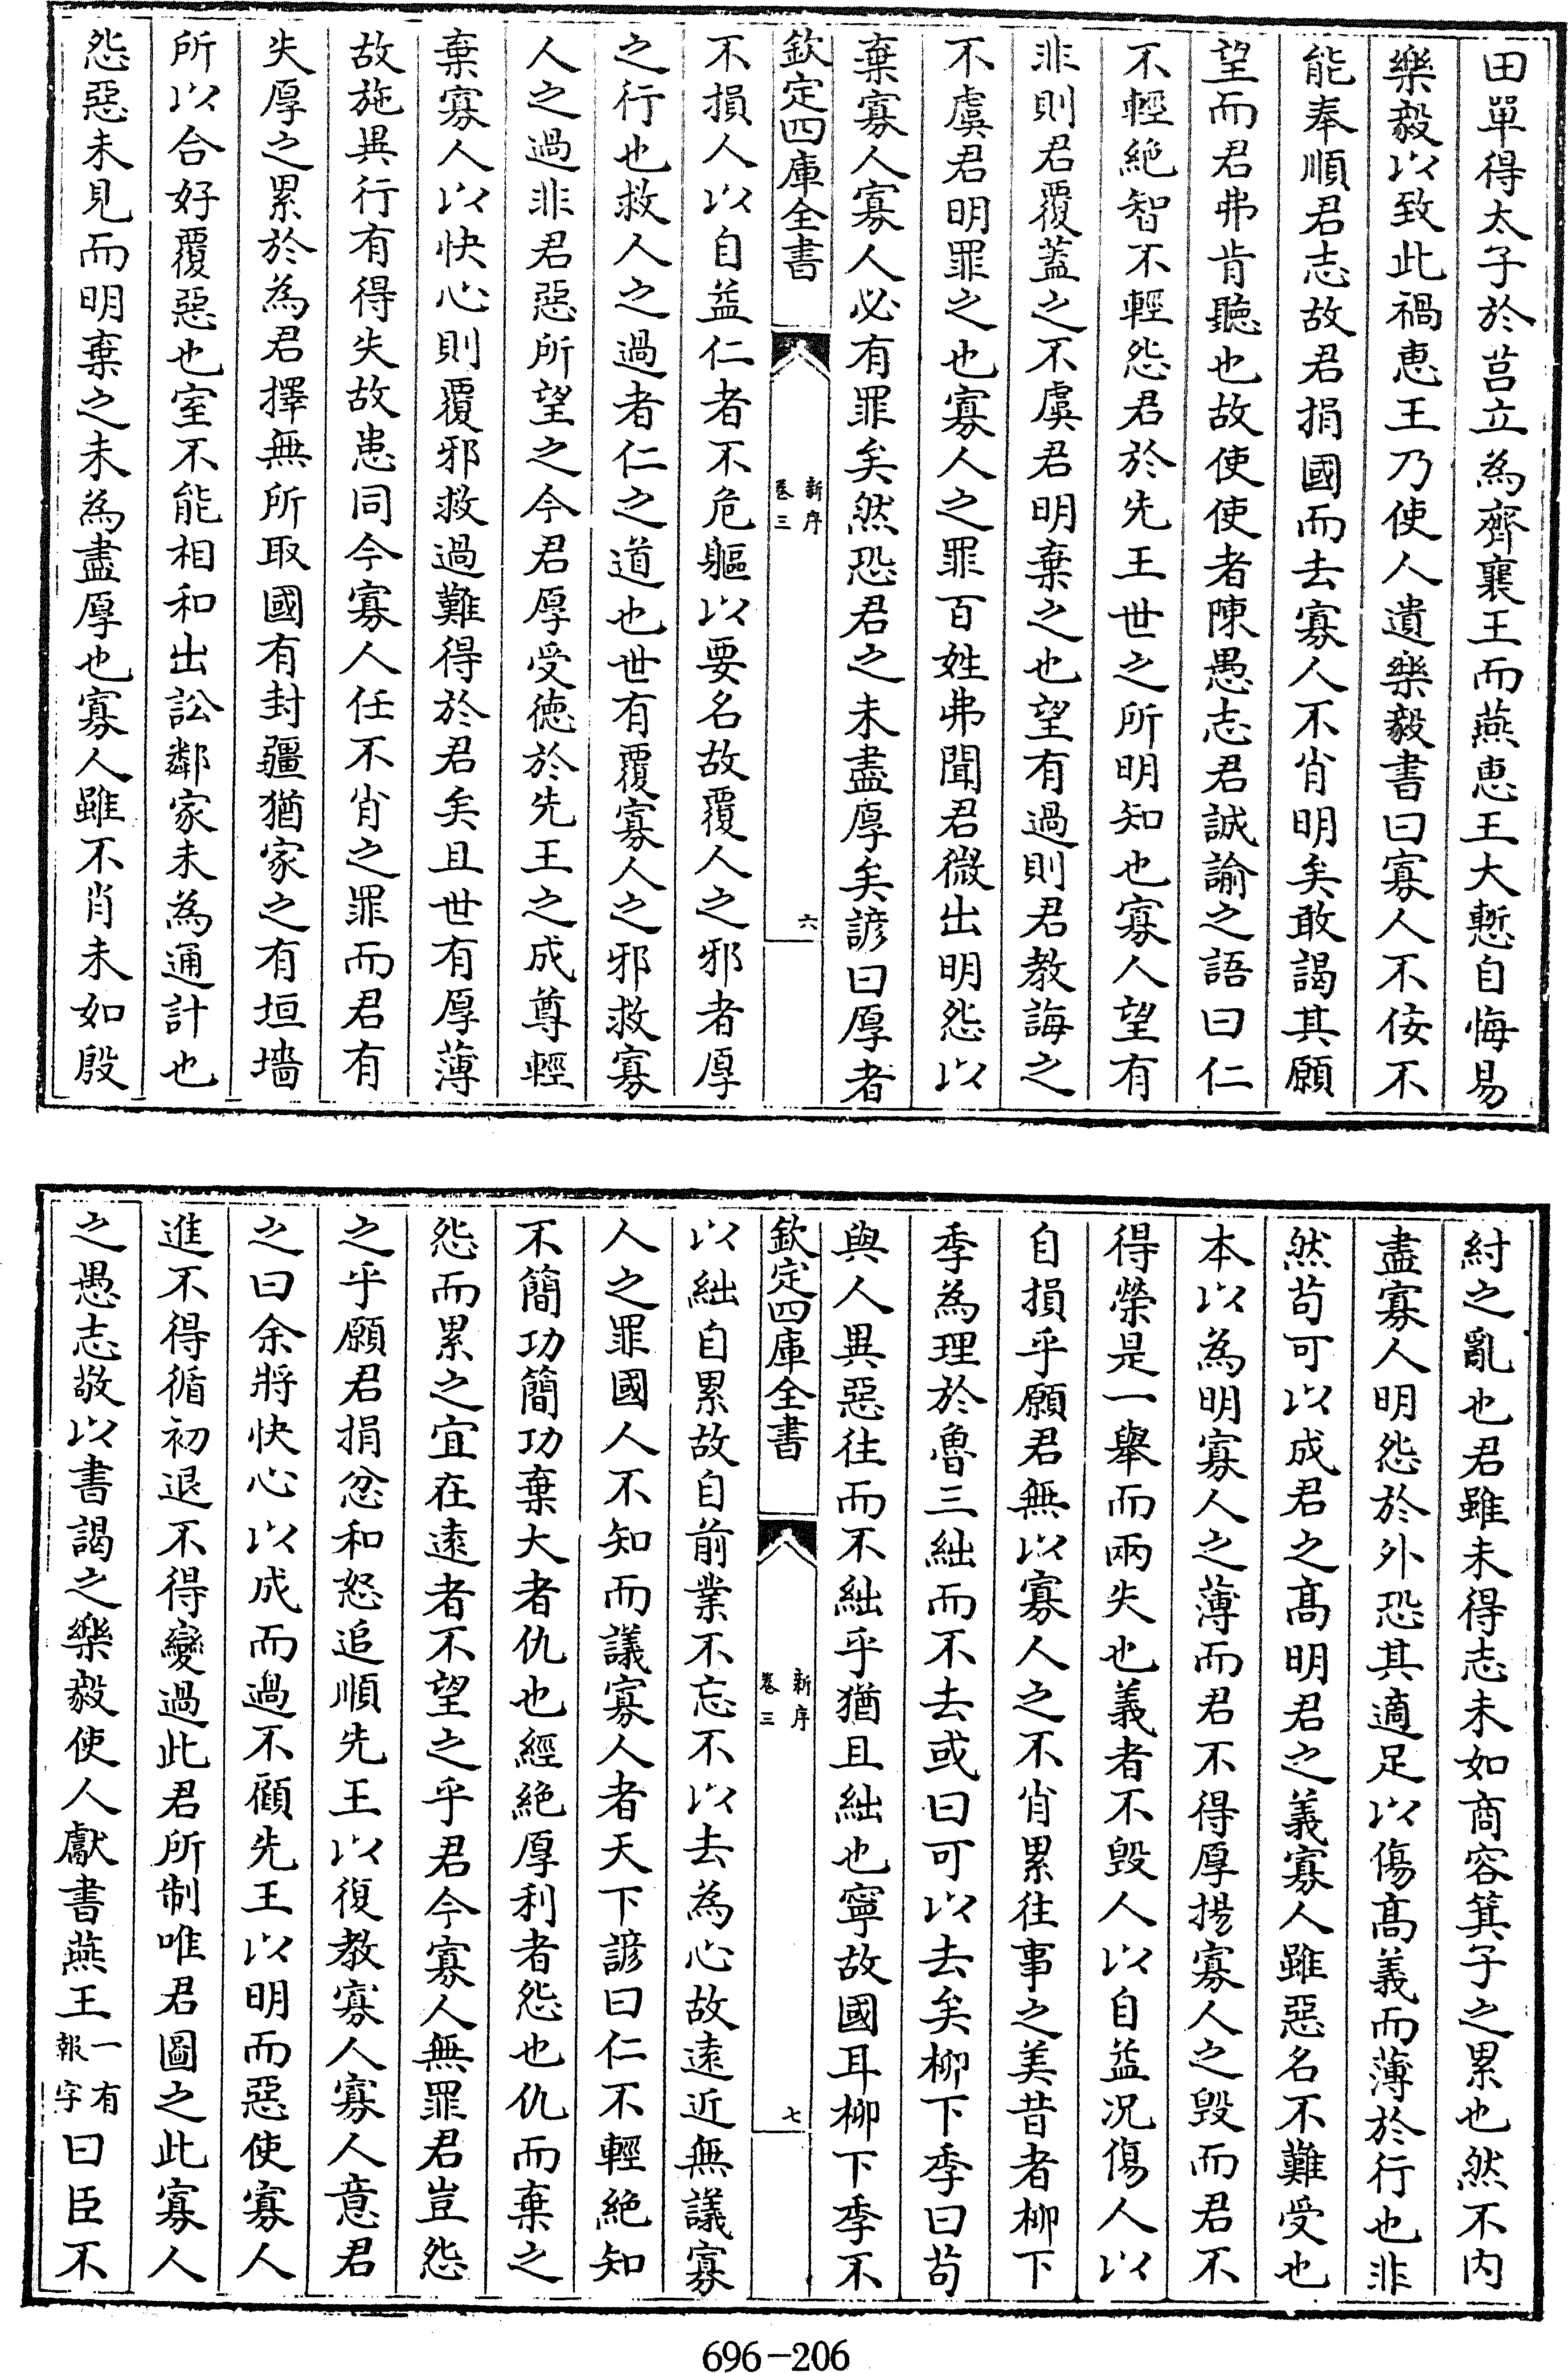 田單得太子於莒立為齊襄王而燕恵王大慙自悔易
樂毅以致此禍恵王乃使人遺樂毅書曰寡人不佞不
能奉順君志故君捐國而去寡人不肖明矣敢謁其願
望而君弗肯聽也故使使者陳愚志君誠諭之語曰仁
不輕絶智不輕怨君於先王世之所明知也寡人望有
非則君覆蓋之不虞君明棄之也望有過則君教誨之
不虞君明罪之也寡人之罪百姓弗聞君微出明怨以
棄寡人寡人必有罪矣然恐君之未盡厚矣諺曰厚者
欽定四庫全書
新序
卷三
六
不損人以自益仁者不危軀以要名故覆人之邪者厚
之行也救人之過者仁之道也世有覆寡人之邪救寡
人之過非君惡所望之今君厚受德於先王之成尊輕
棄寡人以快心則覆邪救過難得於君矣且世有厚薄
故施異行有得失故患同今寡人任不肖之罪而君有
失厚之累於為君擇無所取國有封疆猶家之有垣墻
所以合好覆惡也室不能相和出訟鄰家未為通計也
怨惡未見而明棄之未為盡厚也寡人雖不肖未如殷
紂之亂也君雖未得志未如商容箕子之累也然不内
盡寡人明怨於外恐其適足以傷髙義而薄於行也非
然茍可以成君之髙明君之義寡人雖惡名不難受也
本以為明寡人之薄而君不得厚揚寡人之毁而君不
得榮是一舉而兩失也義者不毁人以自益况傷人以
自損乎願君無以寡人之不肖累往事之美昔者柳下
季為理於魯三絀而不去或曰可以去矣柳下季曰茍
與人異惡往而不絀乎猶且絀也寧故國耳柳下季不
欽定四庫全書
新序
卷三
七
以絀自累故自前業不忘不以去為心故遠近無議寡
人之罪國人不知而議寡人者天下諺曰仁不輕絶知
不簡功簡功棄大者仇也經絶厚利者怨也仇而棄之
怨而累之宜在逺者不望之乎君今寡人無罪君豈怨
之乎願君捐忿和怒追順先王以復教寡人寡人意君
之曰余將快心以成而過不顧先王以明而惡使寡人
進不得循初退不得變過此君所制唯君圖之此寡人
之愚志敬以書謁之樂毅使人獻書燕王一有報字曰臣不
696-206